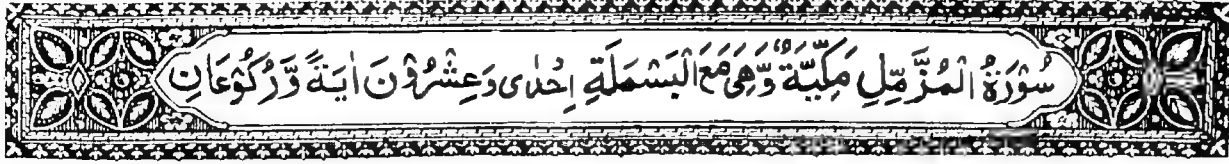 سُوْرَةُ الْمُزَّمِّلِ مَكِّيَّةٌ وَّهِيَ مَعَ الْبَسْمَلَةِ اِحْدٰى وَعِشْرُوْنَ اٰيَةً وَّرُكُوْعَانِ